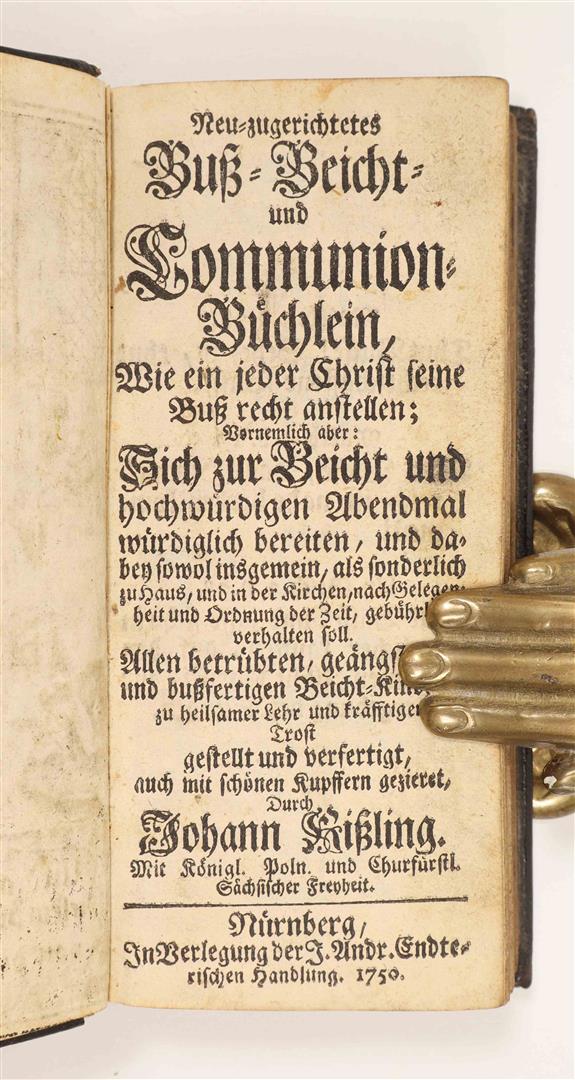 Neu-zugerichtetes
Buß-Beicht-
und
Communion-
Büchlein,
Wie ein jeder Christ seine
Buß recht anstellen;
Vornemlich aber:
Sich zur Beicht und
hochwürdigen Abendmal
würdiglich bereiten, und da-
bey sowol insgemein, als sonderlich
zu Haus, und in der Kirchen, nach Gelegen-
heit und Ordnung der Zeit,
verhalten soll.
Allen betrübten,
und bußfertigen
zu heilsamer Lehr und kräfftigen
Trost
gestellt und verfertigt,
auch mit schönen Kupffern gezieret,
Durch
Johann Kißling.
Mit Königl. Poln. und Churfürstl.
Sächsischer Freyheit.
Nürnberg,
In Verlegung der J. Andr. Endte-
rischen Handlung. 1750.